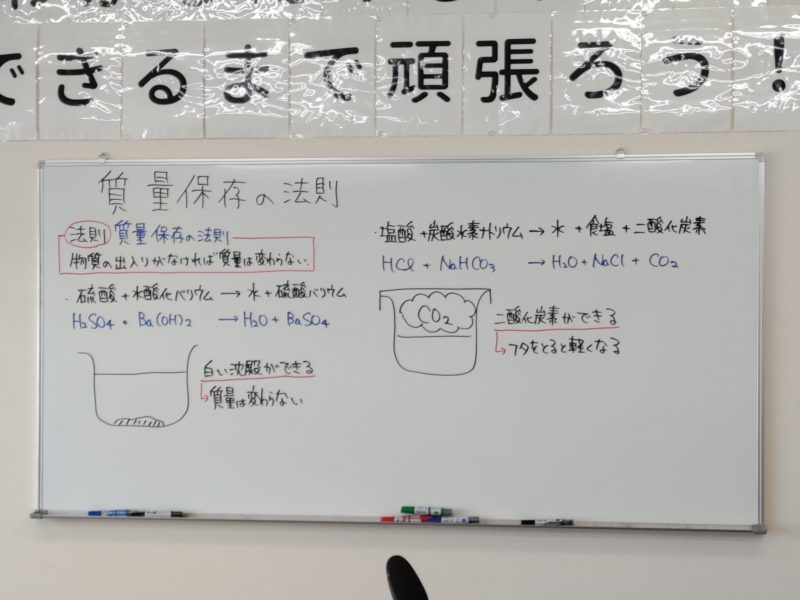 できるまで頑張ろう！
質量保存の法則
法則 質量保存の法則
物質の出入りがなければ質量は変わらない.
・硫酸+水酸化バリウム→水+硫酸バリウム
H2SO4+Ba(OH)2→H2O+BaSO4
白い沈殿ができる
→質量は変わらない
・塩酸+炭酸水素ナトリウム→水+食塩+二酸化炭素
HCl+NaHCO3→H2O+NaCl+CO2
CO2
二酸化炭素ができる
→フタをとると軽くなる